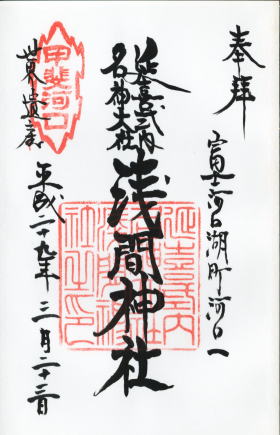 奉拝
富士河口湖町河口一
延喜式内
名神大社
浅間神社
甲斐河口
世界遺産
平成二十九年三月二十三日